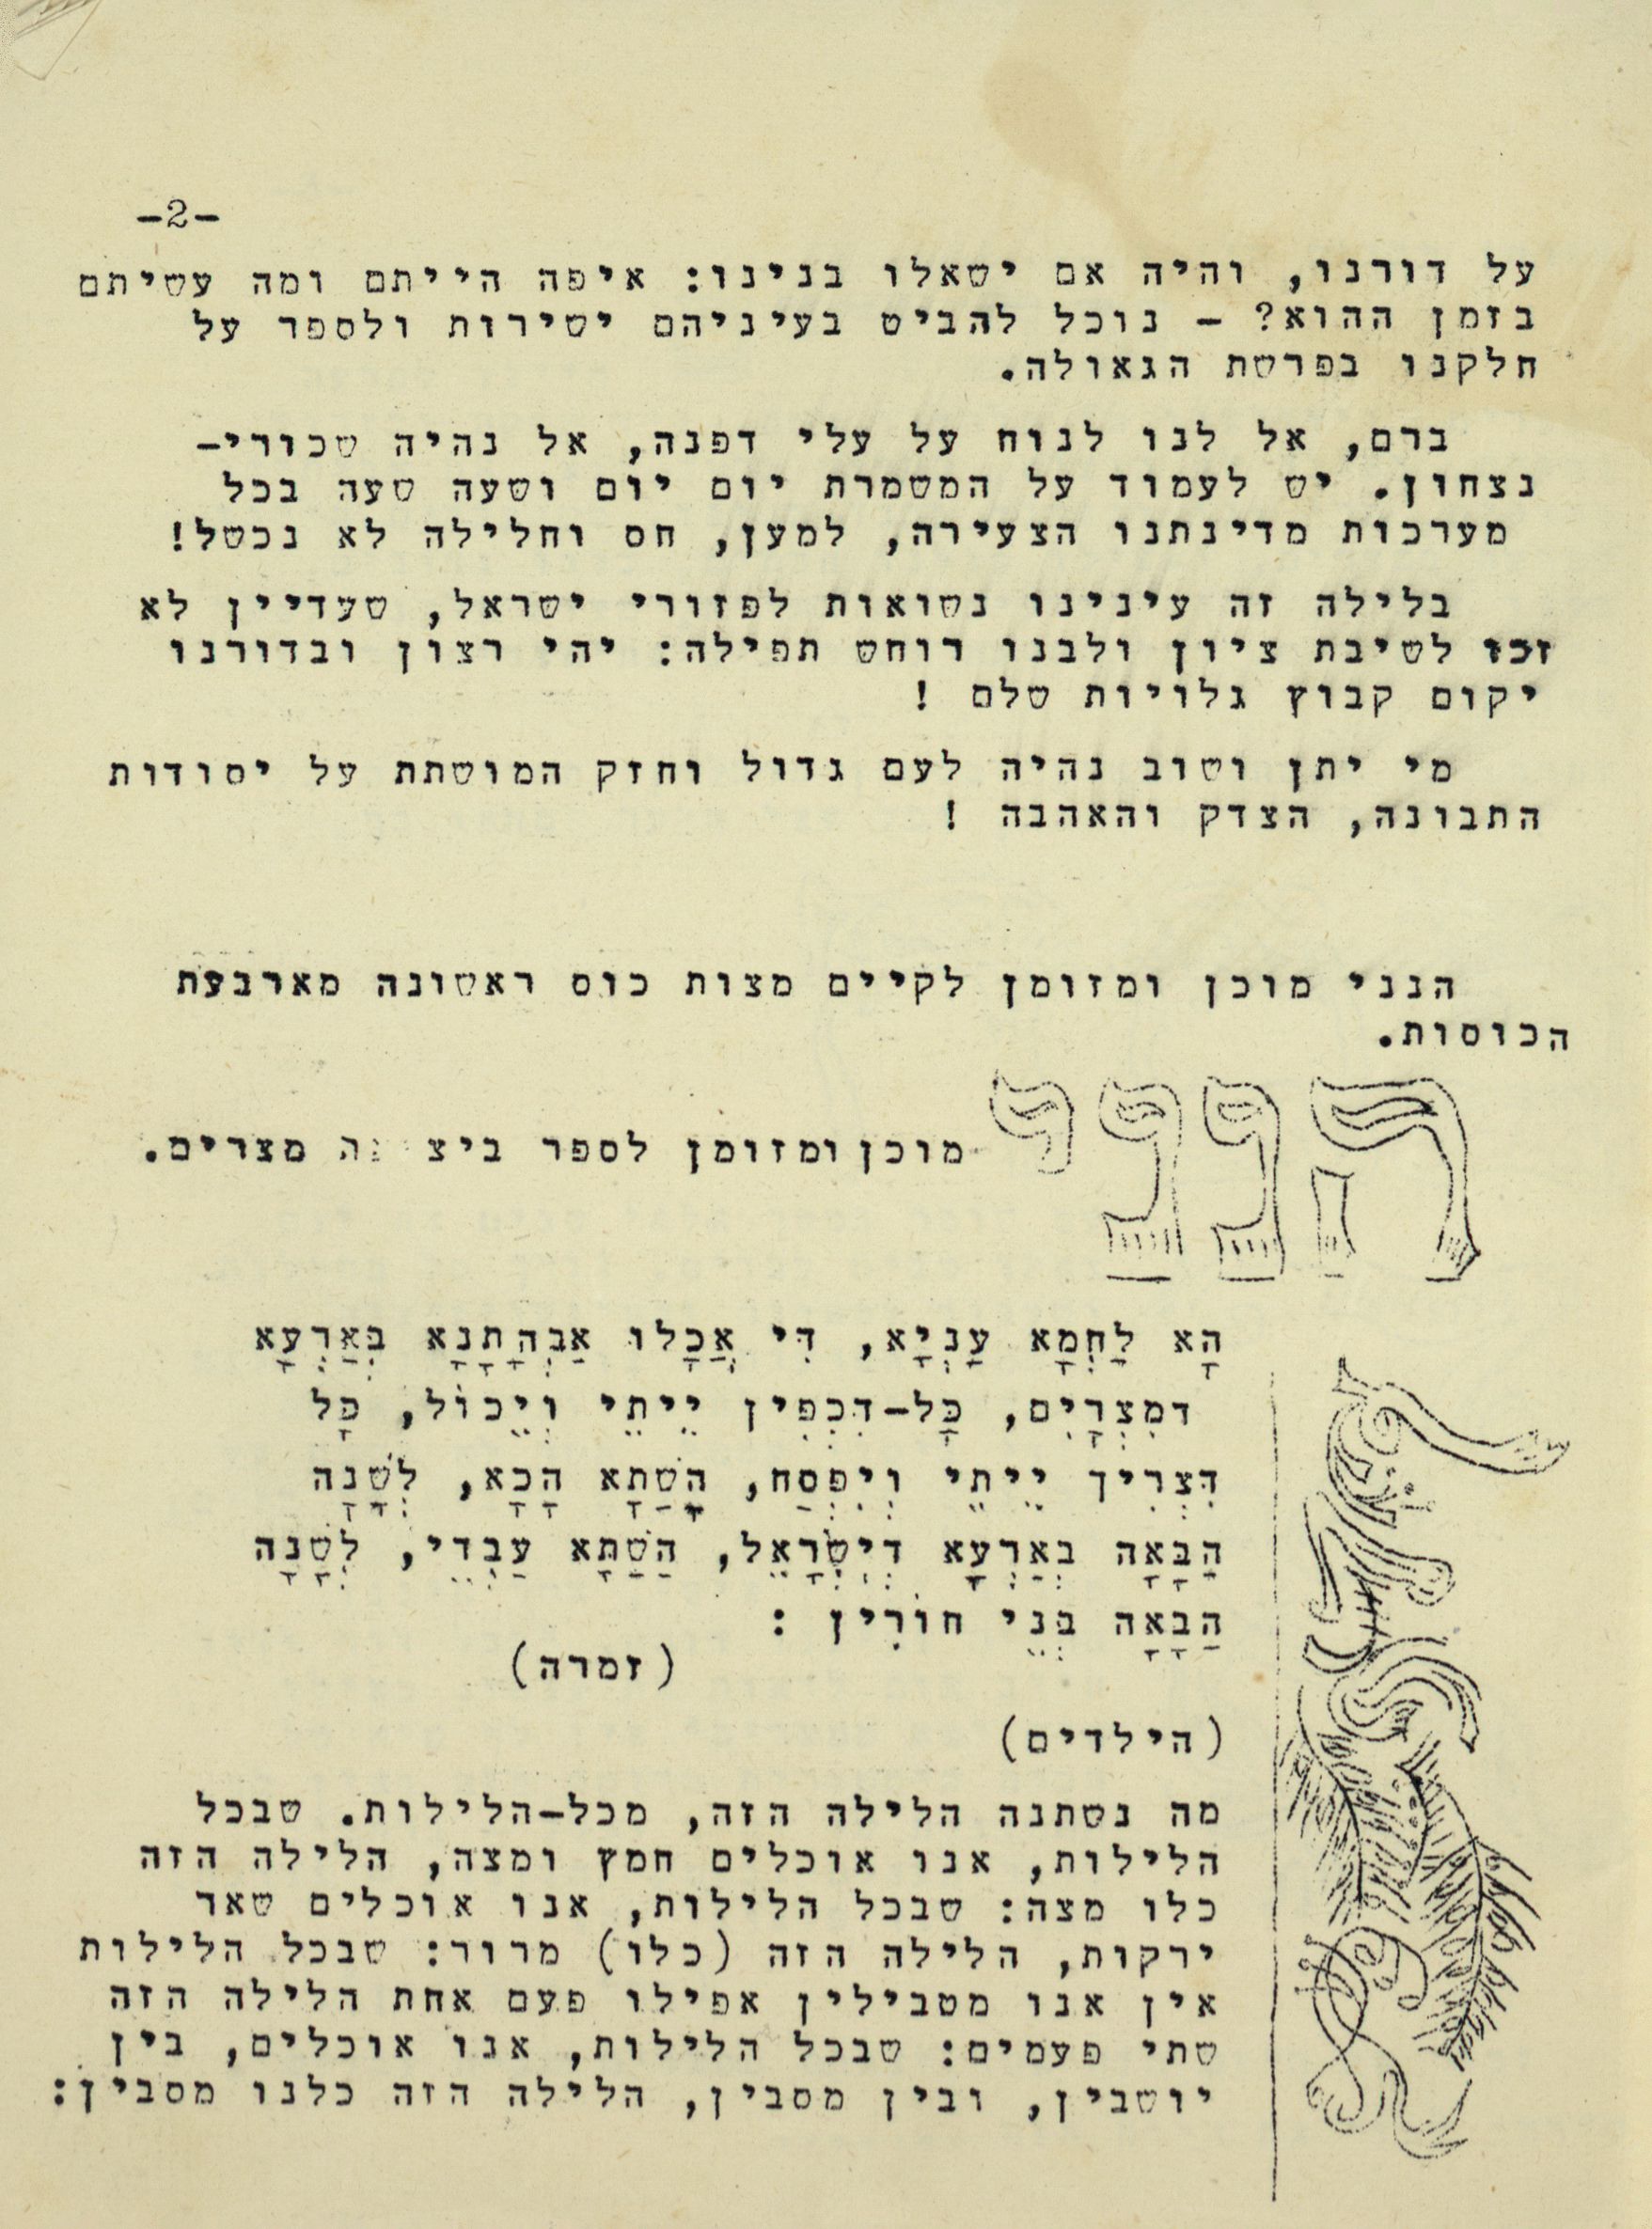 -2-
על דורנו, והיה אם ישאלו בנינו: איפה הייתם ומה עשיתם
בזמן ההוא? - נוכל להביט בעיניהם ישירות ולספר על
חלקנו בפרשת הגאולה.
ברם, אל לנו לנוח על עלי דפנה, אל נהיה שכורי-
נצחון. יש לעמוד על המשמרת יום יום ושעה שעה בכל
מערכות מדינתנו הצעירה, למען, חס וחלילה לא נכשל!
בלילה זה עינינו נשואות לפזורי ישראל, שעדיין לא
זכו לשיבת ציון ולבנו רוחש תפילה: יהי רצון ובדורנו
יקום קבוץ גלויות שלם !
מי יתן ושוב נהיה לעם גדול וחזק המושתת על יסודות
התבונה, הצדק והאהבה !
הנני מוכן ומזומן לקיים מצות כוס ראשונה מארבעת
הכוסות.
הנני מוכן ומזומן לספר מצרים.
הָא לַחְמָא עַנְיָא, דִי אֲכָלוּ אַבְהָתָנָא בְּאַרְעָא
דמִצְרָיִם, כָּל-דִכְפִין יֵיתֵי וְיֵכוֹל, כָּל
דִּצְרִיך יֵיתֵי וְיִפְסַח, הָשַׁתָּא הָכָא, לְשָׁנָה
הַבָּאָה בְּאַרְעָא דְיִשְׂרָאֵל, הַשַׁתָּא עַבְדֵי, לְשָׁנָה
הַבָּאָה בְּנֵי חוֹרִין :
(זמרה)
(הילדים)
מה נשתנה הלילה הזה, מכל-הלילות. שבכל
הלילות, אנו אוכלים חמץ ומצה, הלילה הזה
כלו מצה: שבכל הלילות, אנו אוכלים שאר
ירקות, הלילה הזה (כלו) מרור: שבכל הלילות
אין אנו מטבילין אפילו פעם אחת הלילה הזה
שתי פעמים: שבכל הלילות, אנו אוכלים, בין
יושבין, ובין מסבין, הלילה הזה כלנו מסבין: